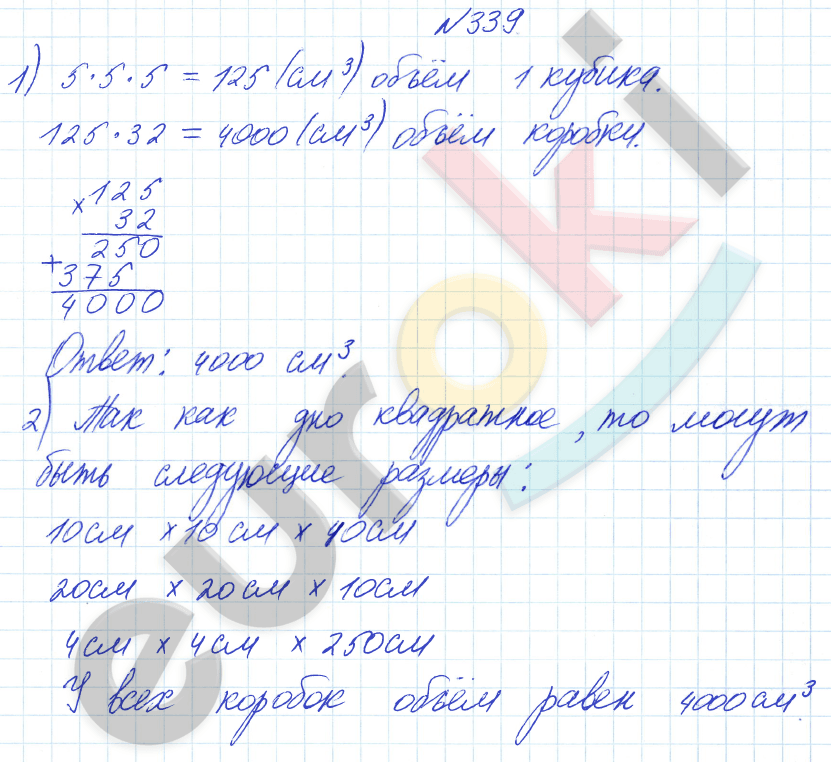 №339
1) 5·5·5 = 125 (см³) объём 1 кубика.
125·32 = 4000 (см³) объём коробки.
×125
32
250
+375
4000
Ответ: 4000 см³.
2) Так как дно квадратное, то могут
быть следующие размеры:
10см × 10см × 40см
20см × 20см × 10см
4см × 4см × 250см
У всех коробок объём равен 4000см³
euroki